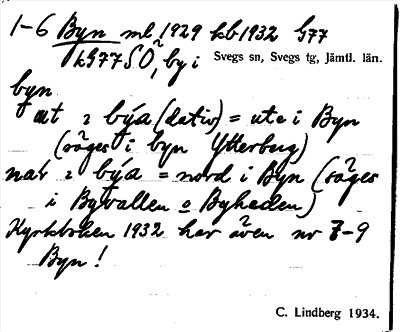 1-6 Byn ml 1929 kb 1932 G77
kG77SÖ, by i Svegs sn, Svegs tg, Jämtl. län.
byn
ut i býa (dativ) = ute i Byn
(säges i byn Ytterberg)
nol i býa = nord i Byn (säges
i Byvallen o Byheden)
Kyrkboken 1932 har även nr 7-9
Byn!
C. Lindberg 1934.